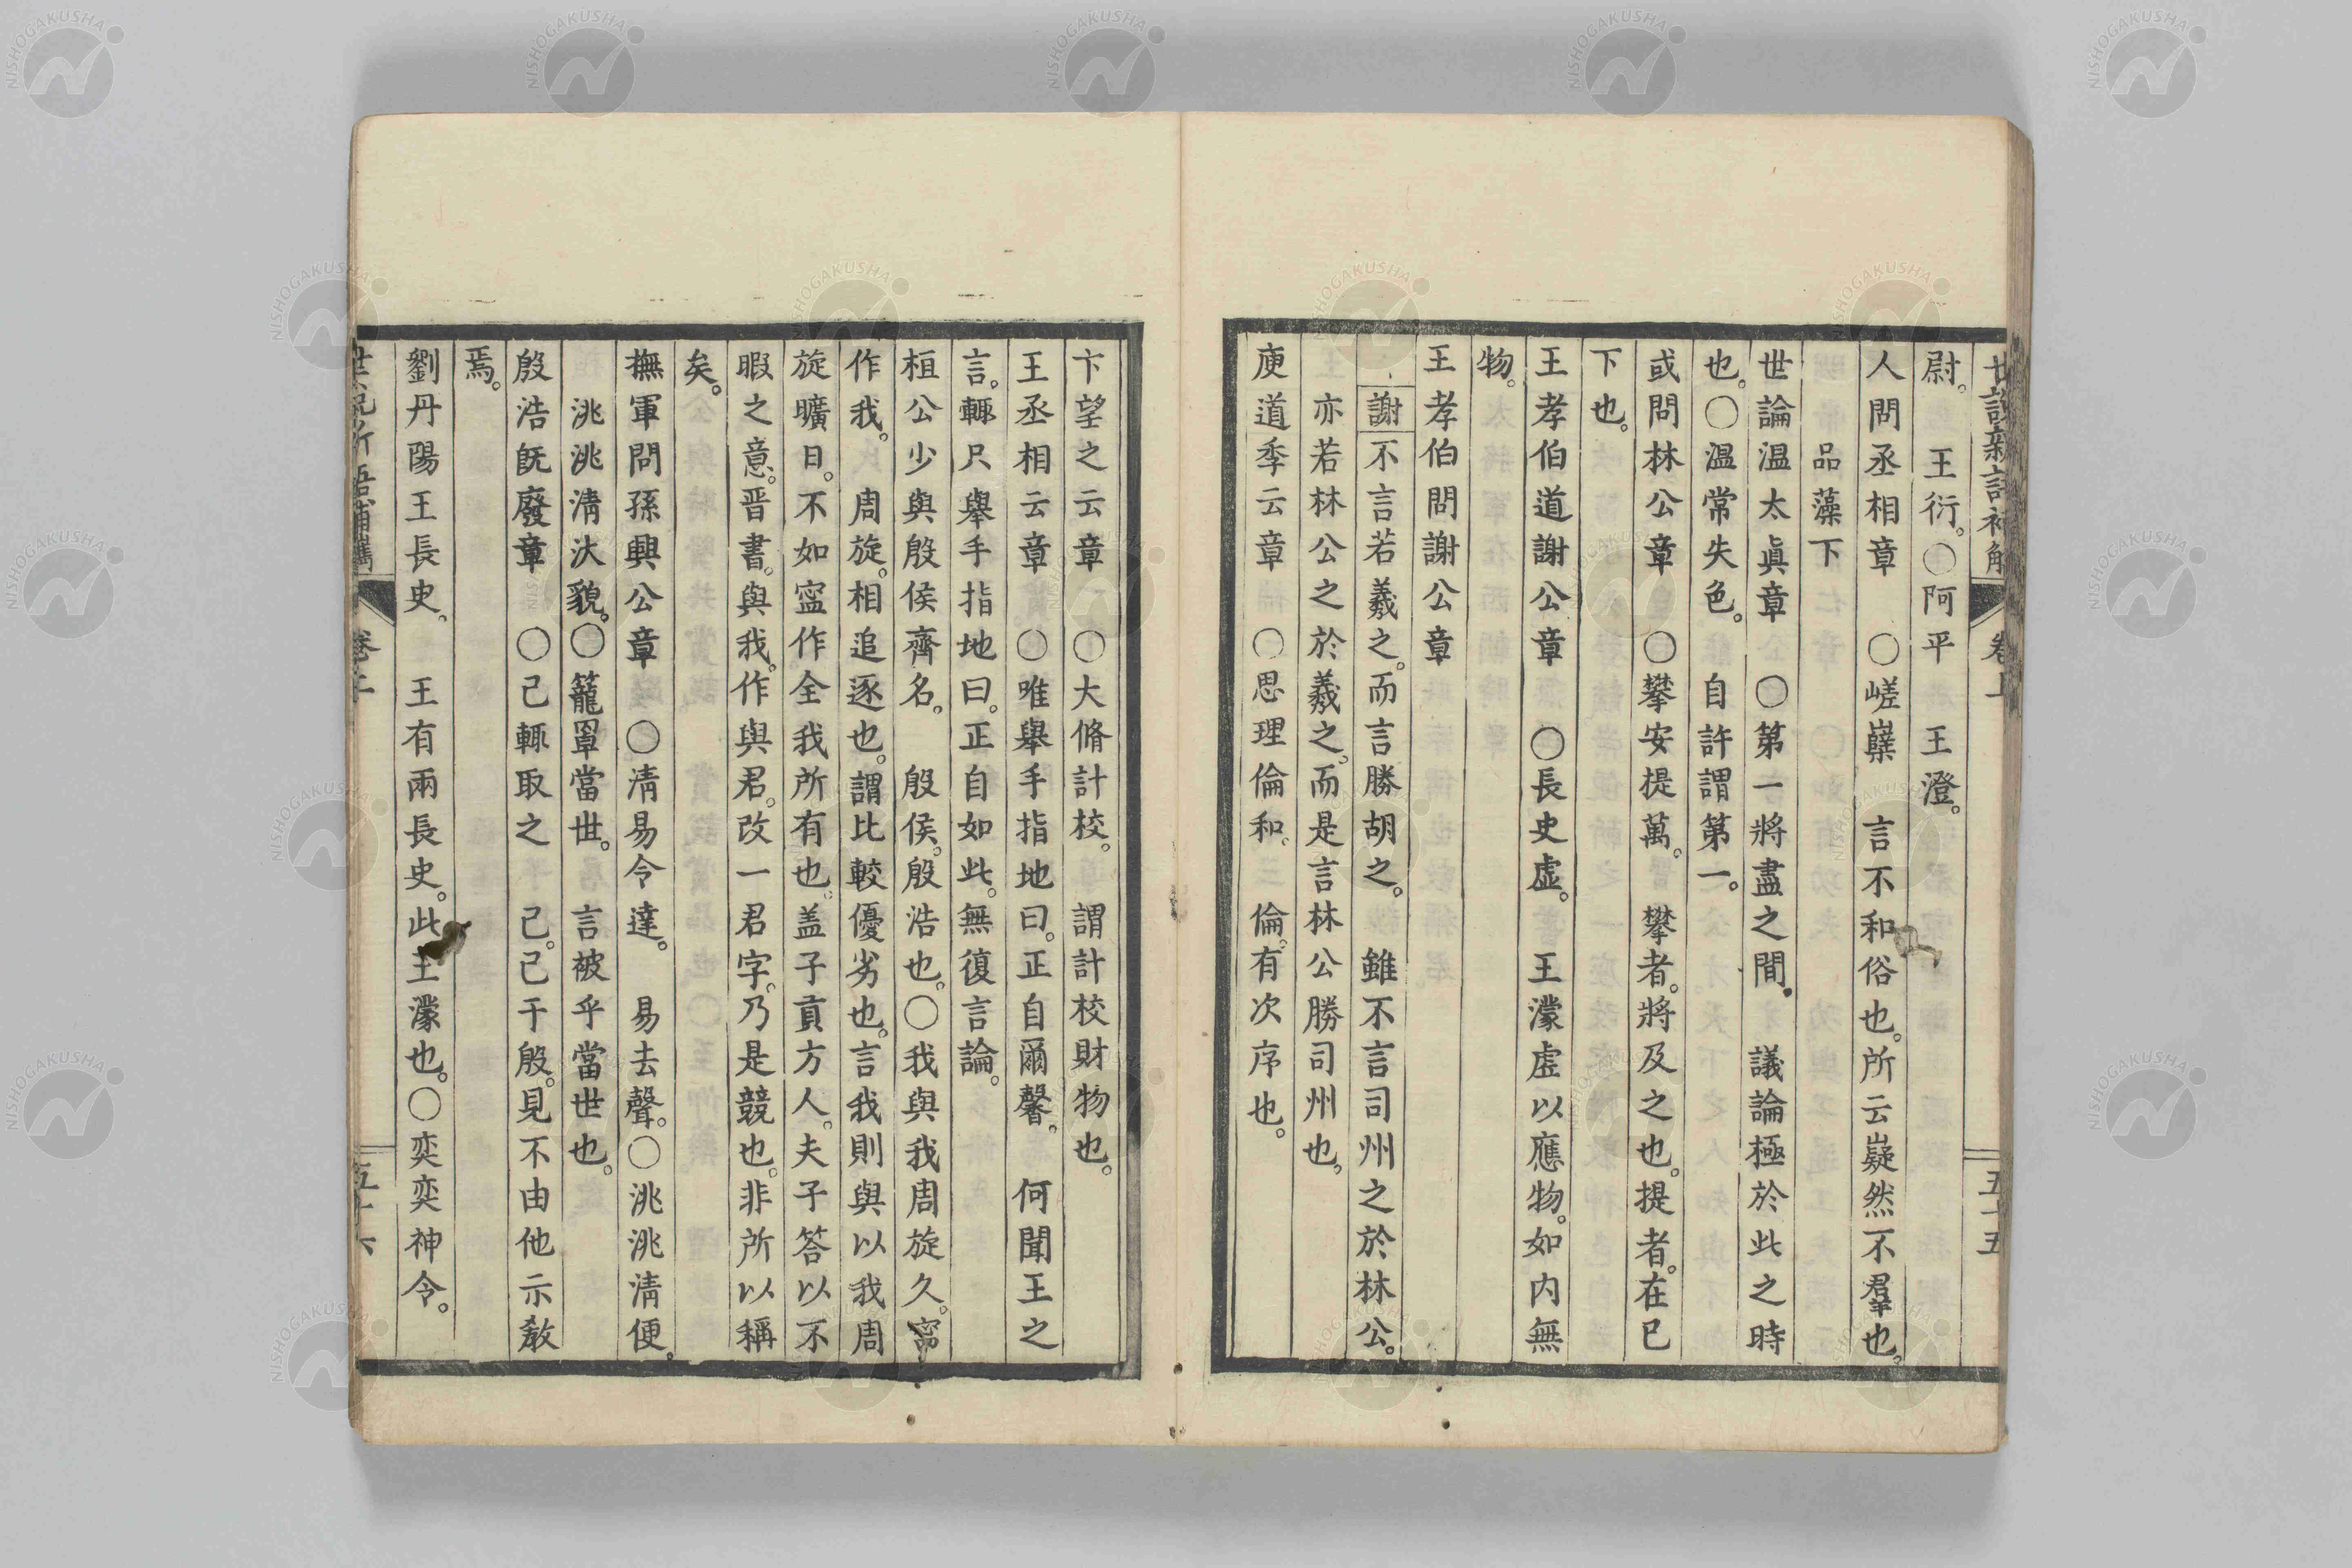 尉。　王衍。〇阿平　王澄。
人問丞相章　〇嵯嶪　言不和俗也。所云嶷然不羣也。
品藻下
世論溫太眞章　〇第一將盡之間。　議論極於此之時
也。〇溫常失色。　自許謂第一。
或問林公章　〇攀安提萬。　攀者。將及之也。提者。在已
下也。
王孝伯道謝公章　〇長史虛。　王濛虛以應物。如内無
物。
王孝伯問謝公章
謝不言若羲之。而言勝胡之。　雖不言司州之於林公。
亦若林公之於羲之。而是言林公勝司州也。
庾道季云章　〇思理倫和。　倫。有次序也。
卞望之云章　〇大脩計校。　謂計校財物也。
王丞相云章　〇唯舉手指地曰。正自爾馨。　何聞王之
言。輒只舉手指地曰。正自如此。無復言論。
桓公少與殷侯齊名。　殷侯。殷浩也。〇我與我周旋久。寗
作我。　周旋。相追逐也。謂比較優劣也。言我則與以我周
旋曠日。不如寍作全我所有也。盖子貢方人。夫子答以不
暇之意。晋書。與我。作與君。改一君字。乃是競也。非所以稱
矣。
撫軍問孫興公章　〇淸易令達。　易去聲。〇洮洮淸便。
洮洮淸汏貌。〇籠罩當世。　言被乎當世也。
殷浩旣廢章　〇己輒取之　己。已于殷。見不由他示敎
焉。
劉丹陽王長史。　王有兩長史。此王濛也。〇奕奕神令。
卷上
五十五
五十六